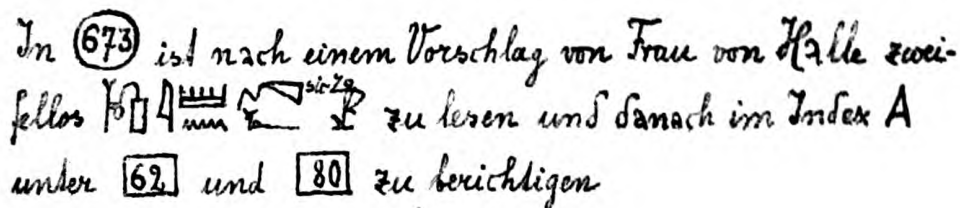 In 673 ist nach einem Vorschlag von Frau von Halle zwei-
fellos sic Zg zu lesen und danach im Index A
unter 62 und 80 zu berichtigen